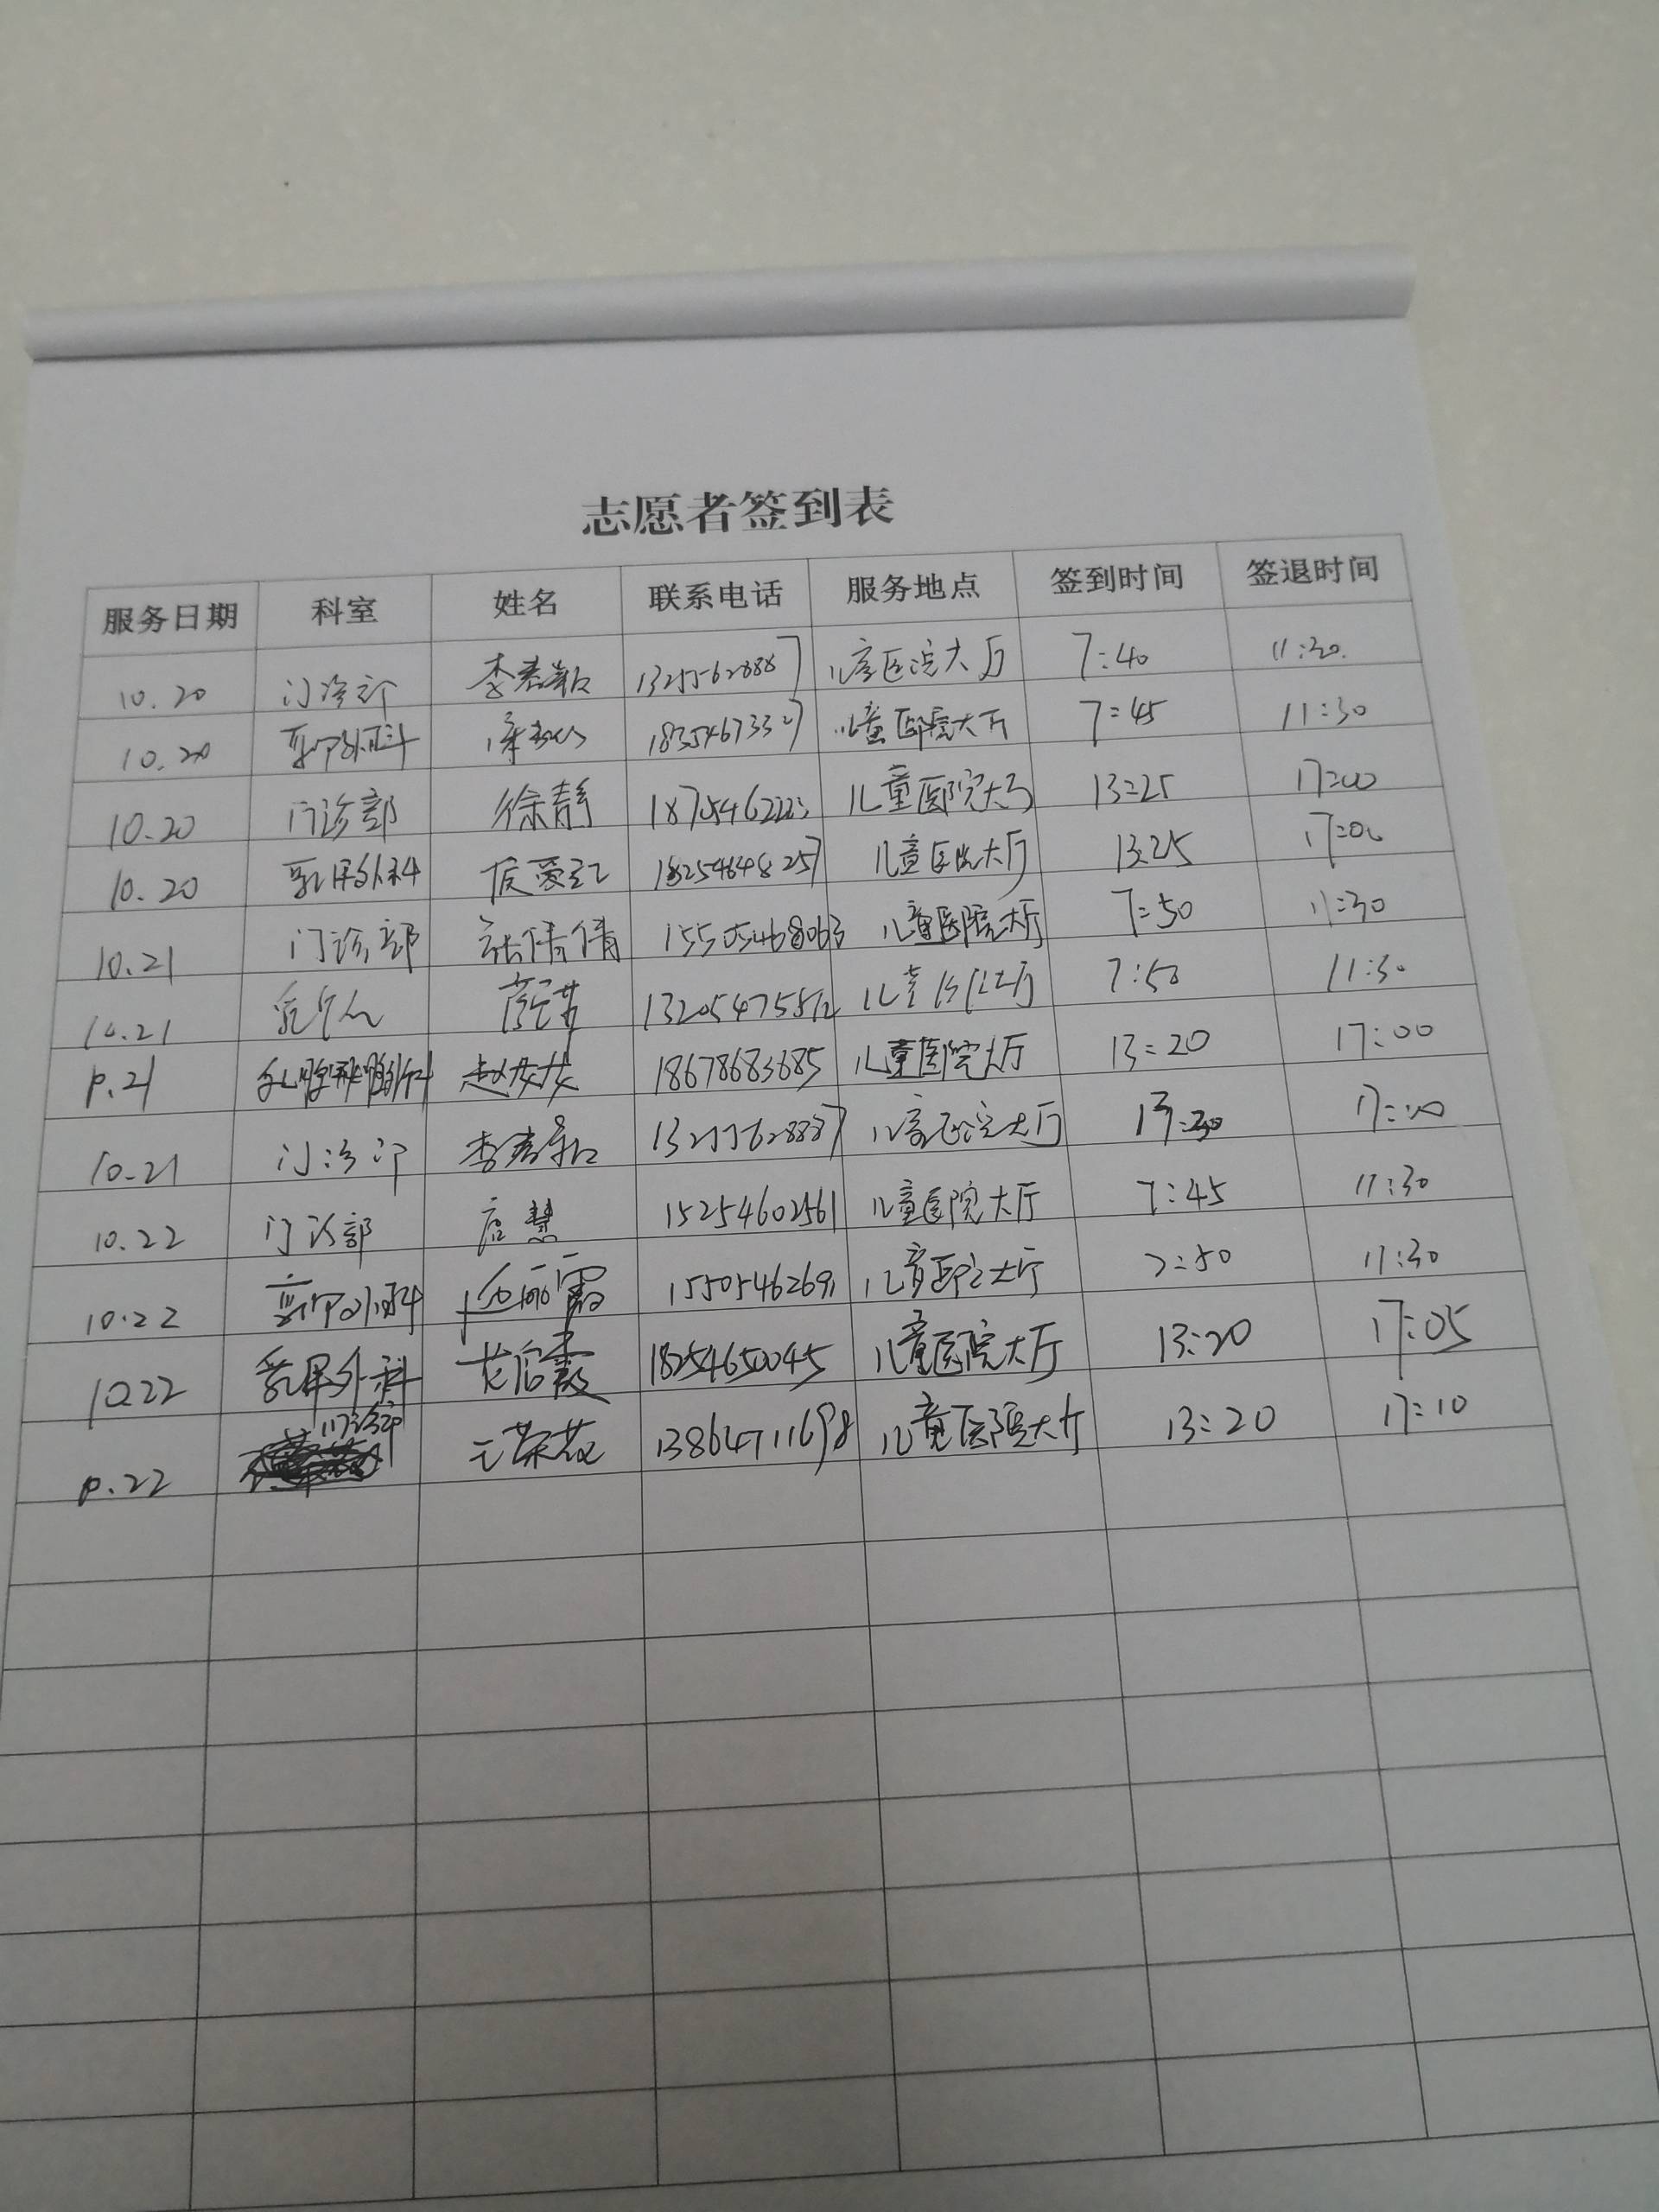 志愿者签到表
服务日期 科室 姓名 联系电话 服务地点 签到时间 签退时间
10.20 门诊部 儿童医院大厅 7:40 11:30
10.20 18354673327 儿童医院大厅 7:45 11:30
10.20 门诊部 徐静 儿童医院大厅 13:25 17:00
10.20 乳甲外科 18254648257 儿童医院大厅 13:25 17:00
10.21 门诊部 张倩倩 15505468063 儿童医院大厅 7:50 11:30
10.21 13205475512 儿童 7:50 11:30
10.21 18678683685 儿童医院大厅 13:20 17:00
10.21 门诊部 儿童医院大厅 17:00
10.22 门诊部 15254602561 儿童医院大厅 7:45 11:30
10.22 15505462691 儿童医院大厅 7:50 11:30
10.22 乳甲外科 18254650045 儿童医院大厅 13:20 17:05
10.22 门诊部 13864711698 儿童医院大厅 13:20 17:10